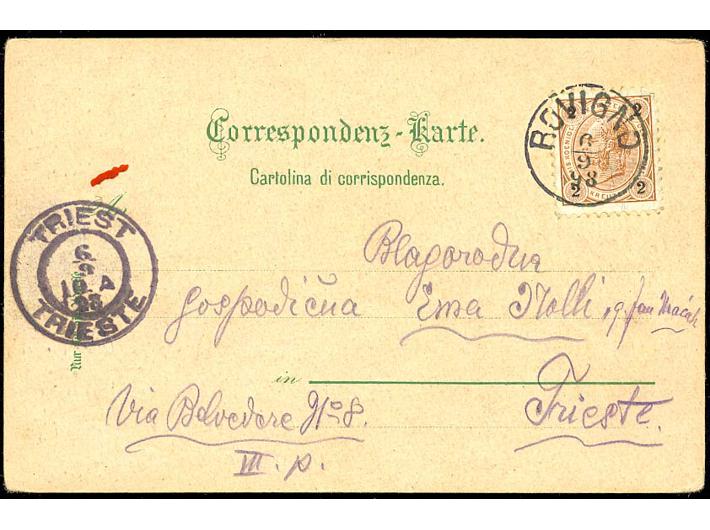 Correspondenz-Karte.
Cartolina di corrispondenza.
ROVIGNO
6
9
98
2 2
2 2
KREUZER
TRIEST
6
9
98
TRIESTE
Nur
Blagorodna
Gospodična Ema Nolli,
in
Via Belvedere No 8. Trieste.
III. p.